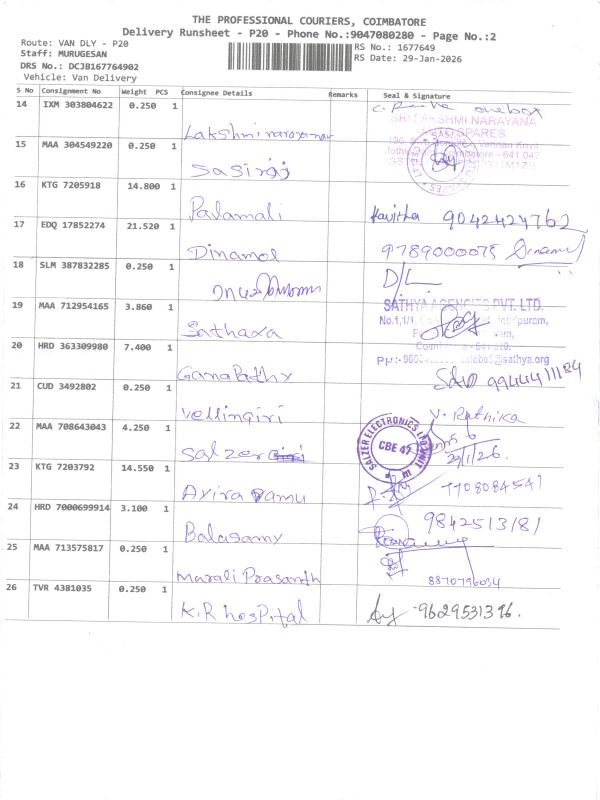 THE PROFESSIONAL COURIERS, COIMBATORE
Delivery Runsheet - P20 - Phone No.:9047080280 - Page No.:2
Route: VAN DLY - P20
Staff: MURUGESAN
DRS No.: DCJB167764902
Vehicle: Van Delivery
RS No.: 1677649
RS Date: 29-Jan-2026
S No Consignment No Weight PCS Consignee Details Remarks Seal & Signature
14 IXM 303804622 0.250 1
Lakshmi narayanan
SRI LAKSHMI NARAYANA
SPARES
15 MAA 304549220 0.250 1
Sasiraj
16 KTG 7205918 14.800 1
Palamali Kavitha 9042424762
17 EDQ 17852274 21.520 1
Dinamol 9789000075
18 SLM 387832285 0.250 1
D/L
19 MAA 712954165 3.860 1
Sathaxa
SATHYA AGENCIES PVT. LTD.
20 HRD 363309980 7.400 1
Ganapathy 9944411184
21 CUD 3492802 0.250 1
Vellingiri V. Rathika
22 MAA 708643043 4.250 1
Salzer
SALZER ELECTRONICS LTD UNIT
CBE 47
23 KTG 7203792 14.550 1
Ayira ramu 7708084541
24 HRD 7000699914 3.100 1
Balasamy 9842513181
25 MAA 713575817 0.250 1
Marali Prasanth 8870796034
26 TVR 4381035 0.250 1
K.R hospital 9629531396.